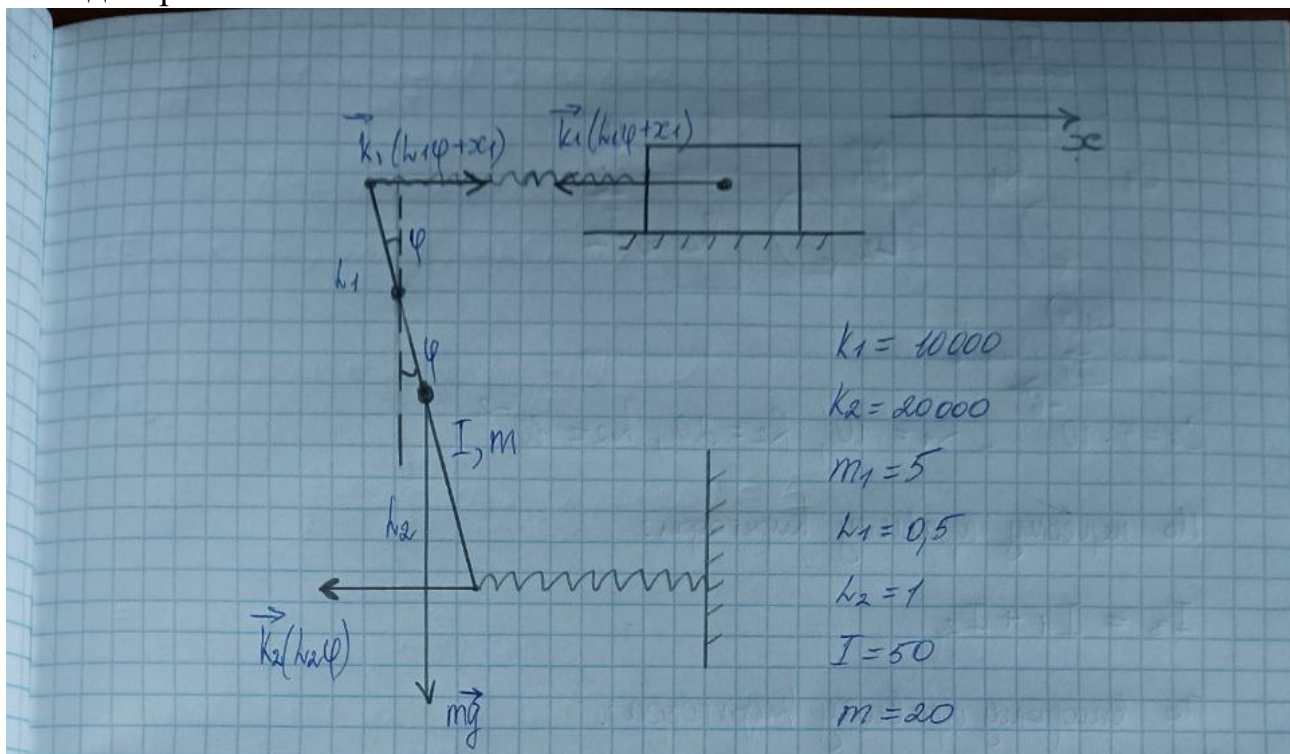 k₁(L₁φ+x₁)
k₁(L₁φ+x₁)
x
φ
L₁
φ
I, m
L₂
k₂(L₂φ)
mg
k₁ = 10000
k₂ = 20000
m₁ = 5
L₁ = 0,5
L₂ = 1
I = 50
m = 20